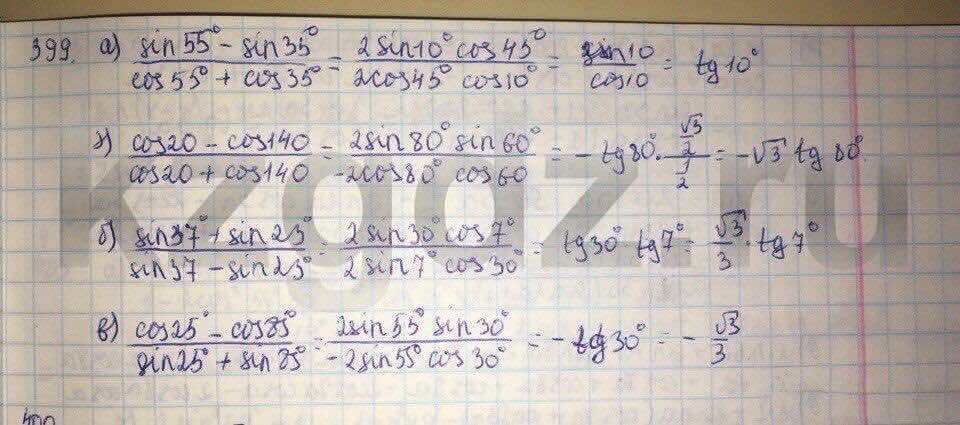 399. а) (sin55° - sin35°)/(cos55° + cos35°) = (2sin10° cos45°)/(2cos45° cos10°) = sin10/cos10 = tg10°
г) (cos20 - cos140)/(cos20 + cos140) = (2sin80° sin60°)/(-2cos80° cos60) = - tg80° · (√3/2)/(1/2) = -√3 tg 80°
б) (sin37° + sin23°)/(sin37 - sin23°) = (2sin30° cos7°)/(2sin7° cos30°) = tg30° tg7° = √3/3 · tg7°
в) (cos25° - cos85°)/(sin25° + sin85°) = (2sin55° sin30°)/(-2sin55° cos30°) = - tg30° = - √3/3
400
kzgdz.ru